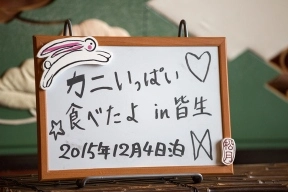 カニいっぱい
食べたよ in 皆生
2015年12月4日泊
松月